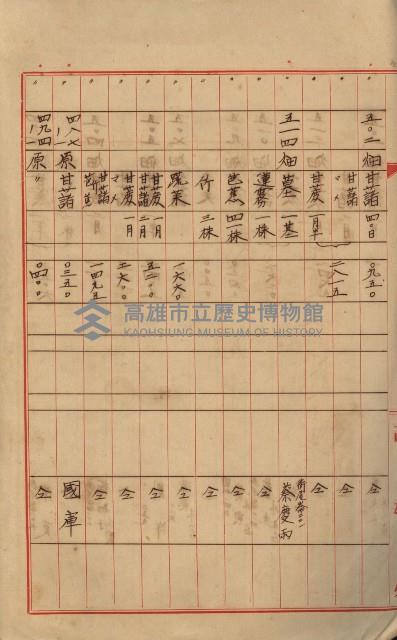 〃 五〇二 畑 甘藷 四〇日 〇九五〇 仝
〃 甘藷 仝
〃 甘蔗 一月半 二八一五 仝
〃 五一四 畑 墓 一基 蔡慶雨
〃 蓮霧 一株 仝
〃 芭蕉 四一株 仝
〃 竹 三株 仝
〃 蔬菜 一六六〇 仝
〃 甘蔗 一月 仝
甘藷 二月
〃 甘蔗 一月 仝
〃 甘藷 一四九五 仝
〃 四八七ノ一 原 甘藷 〇三五〇 國庫
〃 原 〃 〇四〇〇 仝
高雄市立歷史博物館
KAOHSIUNG MUSEUM OF HISTORY